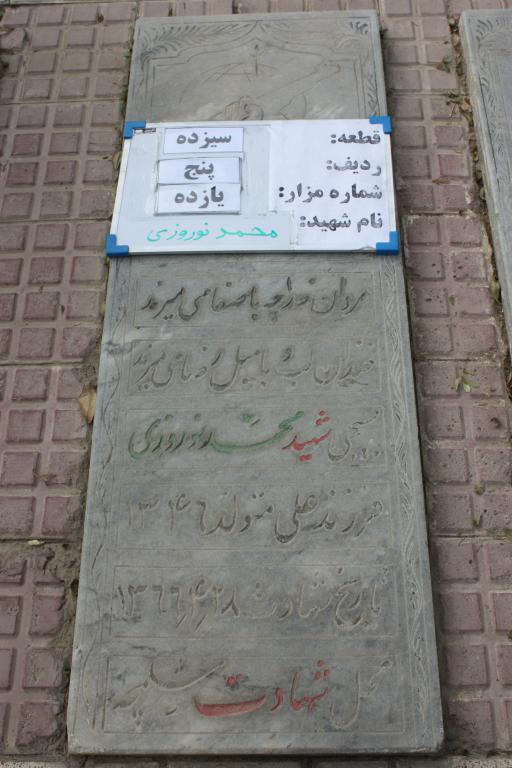 قطعه: سیزده
ردیف: پنج
شماره مزار: یازده
نام شهید: محمد نوروزی
مردان خدا چه با صفا می میرند
خندان لب و با میل رضا می میرند
بسیجی شهید محمد نوروزی
فرزند علی متولد ۱۳۴۶
تاریخ شهادت ۱۳۶۶/۴/۲۸
محل شهادت شلمچه